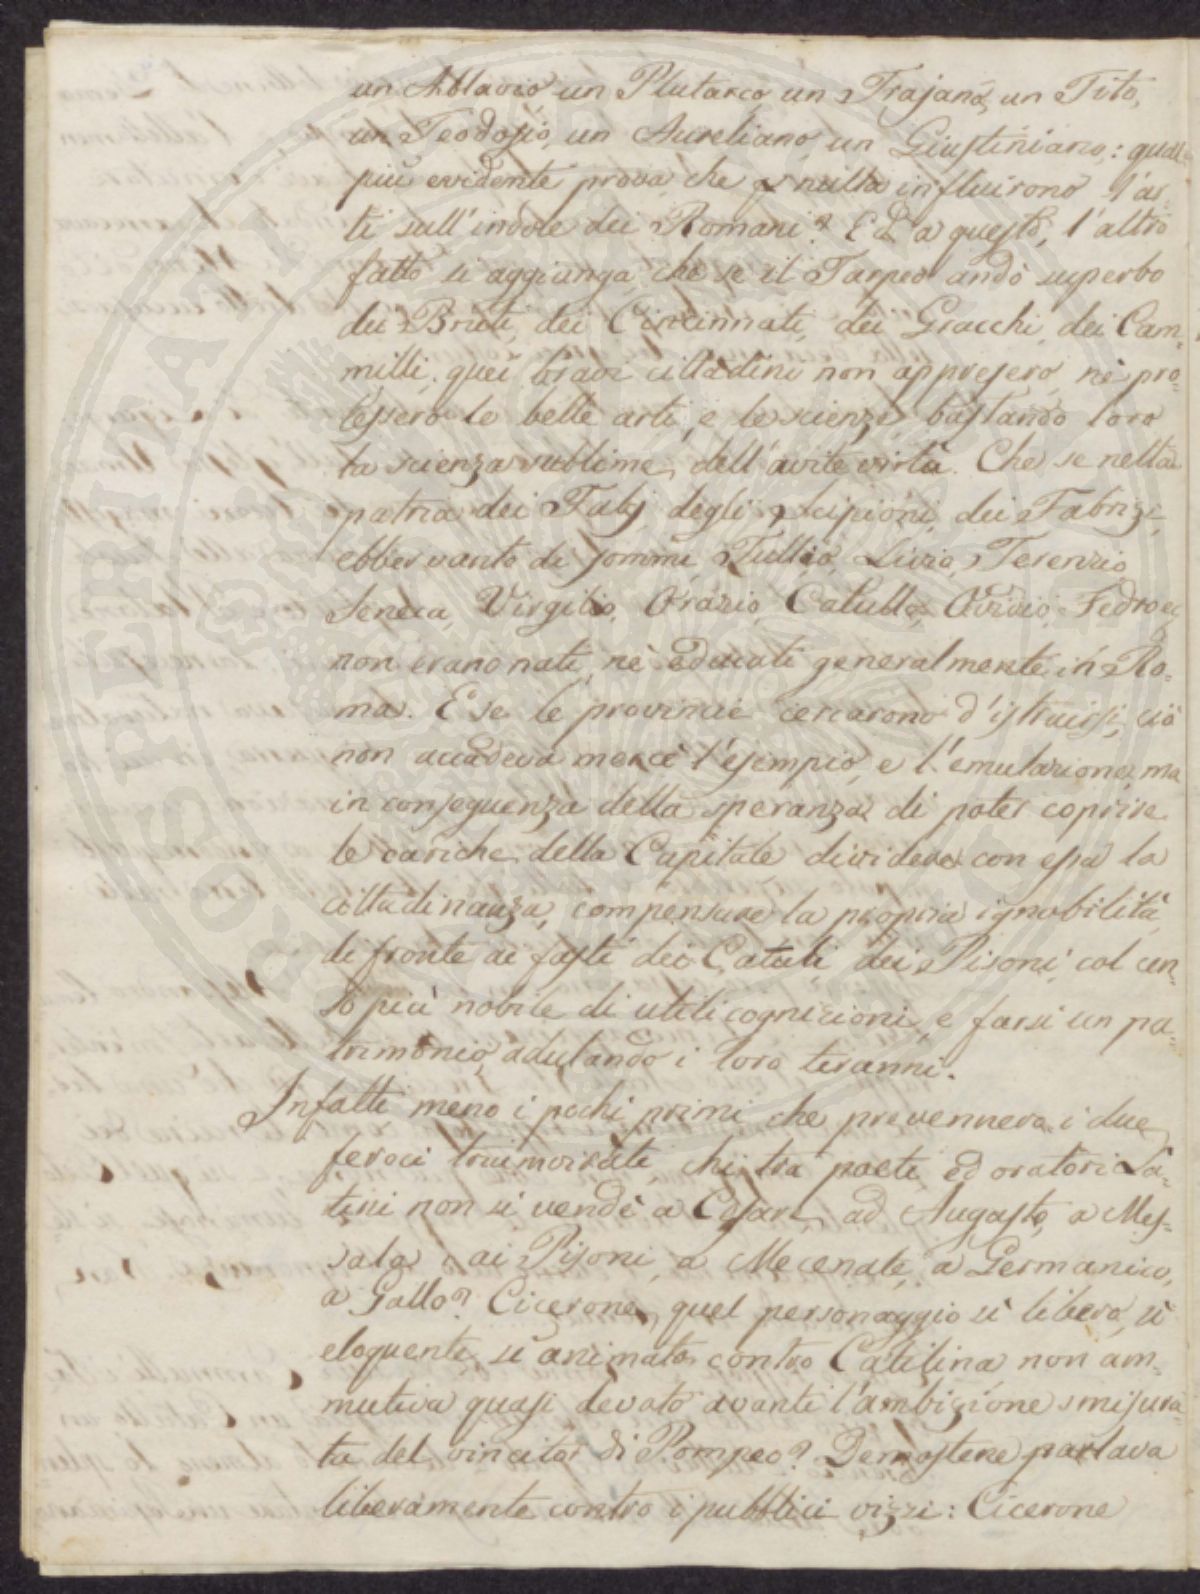 un Ablavio un Plutarco un Trajano, un Tito,
un Teodosio, un Aureliano, un Giustiniano,: qual
più evidente prova, che nulla influirono l'ar-
ti sull'indole dei Romani? Ed a questo, l'altro
fatto si aggiunga, che se il Tarpeo andò superbo
dei Bruti, dei Cincinnati, dei Gracchi, dei Cam-
milli, quei bravi cittadini non appresero, nè pro-
tessero le belle arti, e le scienze bastando loro
la scienza sublime, dell'avite virtù. Che se nella
patria dei Fabj, degli Scipioni, dei Fabrizi,
ebber vanto di sommi Tullio, Livio, Terenzio
Seneca, Virgilio, Orazio, Catullo, Ovidio, Fedro ec,
non erano nati, nè educati generalmente in Ro-
ma. E se le provincie cercarono d'istruirsi, ciò
non accadeva mercè l'esempio, e l'emulazione, ma
in conseguenza della speranza di poter coprire
le cariche della Capitale, dividere con essa la
cittadinanza, compensare la propria ignobilità
di fronte ai fasti dei Catuli dei Pisoni, col cen-
so più nobile di utili cognizioni, e farsi un pa-
trimonio, adulando i loro tiranni.
Infatti meno i pochi primi che prevennero i due
feroci triumvirati, chi tra poeti, ed oratori La-
tini non si vendè a Cesare, ad Augusto, a Mes-
sala, ai Pisoni, a Mecenate, a Germanico,
a Gallo? Cicerone, quel personaggio sì libero, sì
eloquente, sì animato contro Catilina non am-
mutiva quasi devoto avanti l'ambizione smisura-
ta del vincitor di Pompeo? Demostene parlava
liberamente contro i pubblici vizzi: Cicerone
PROSPERITATI